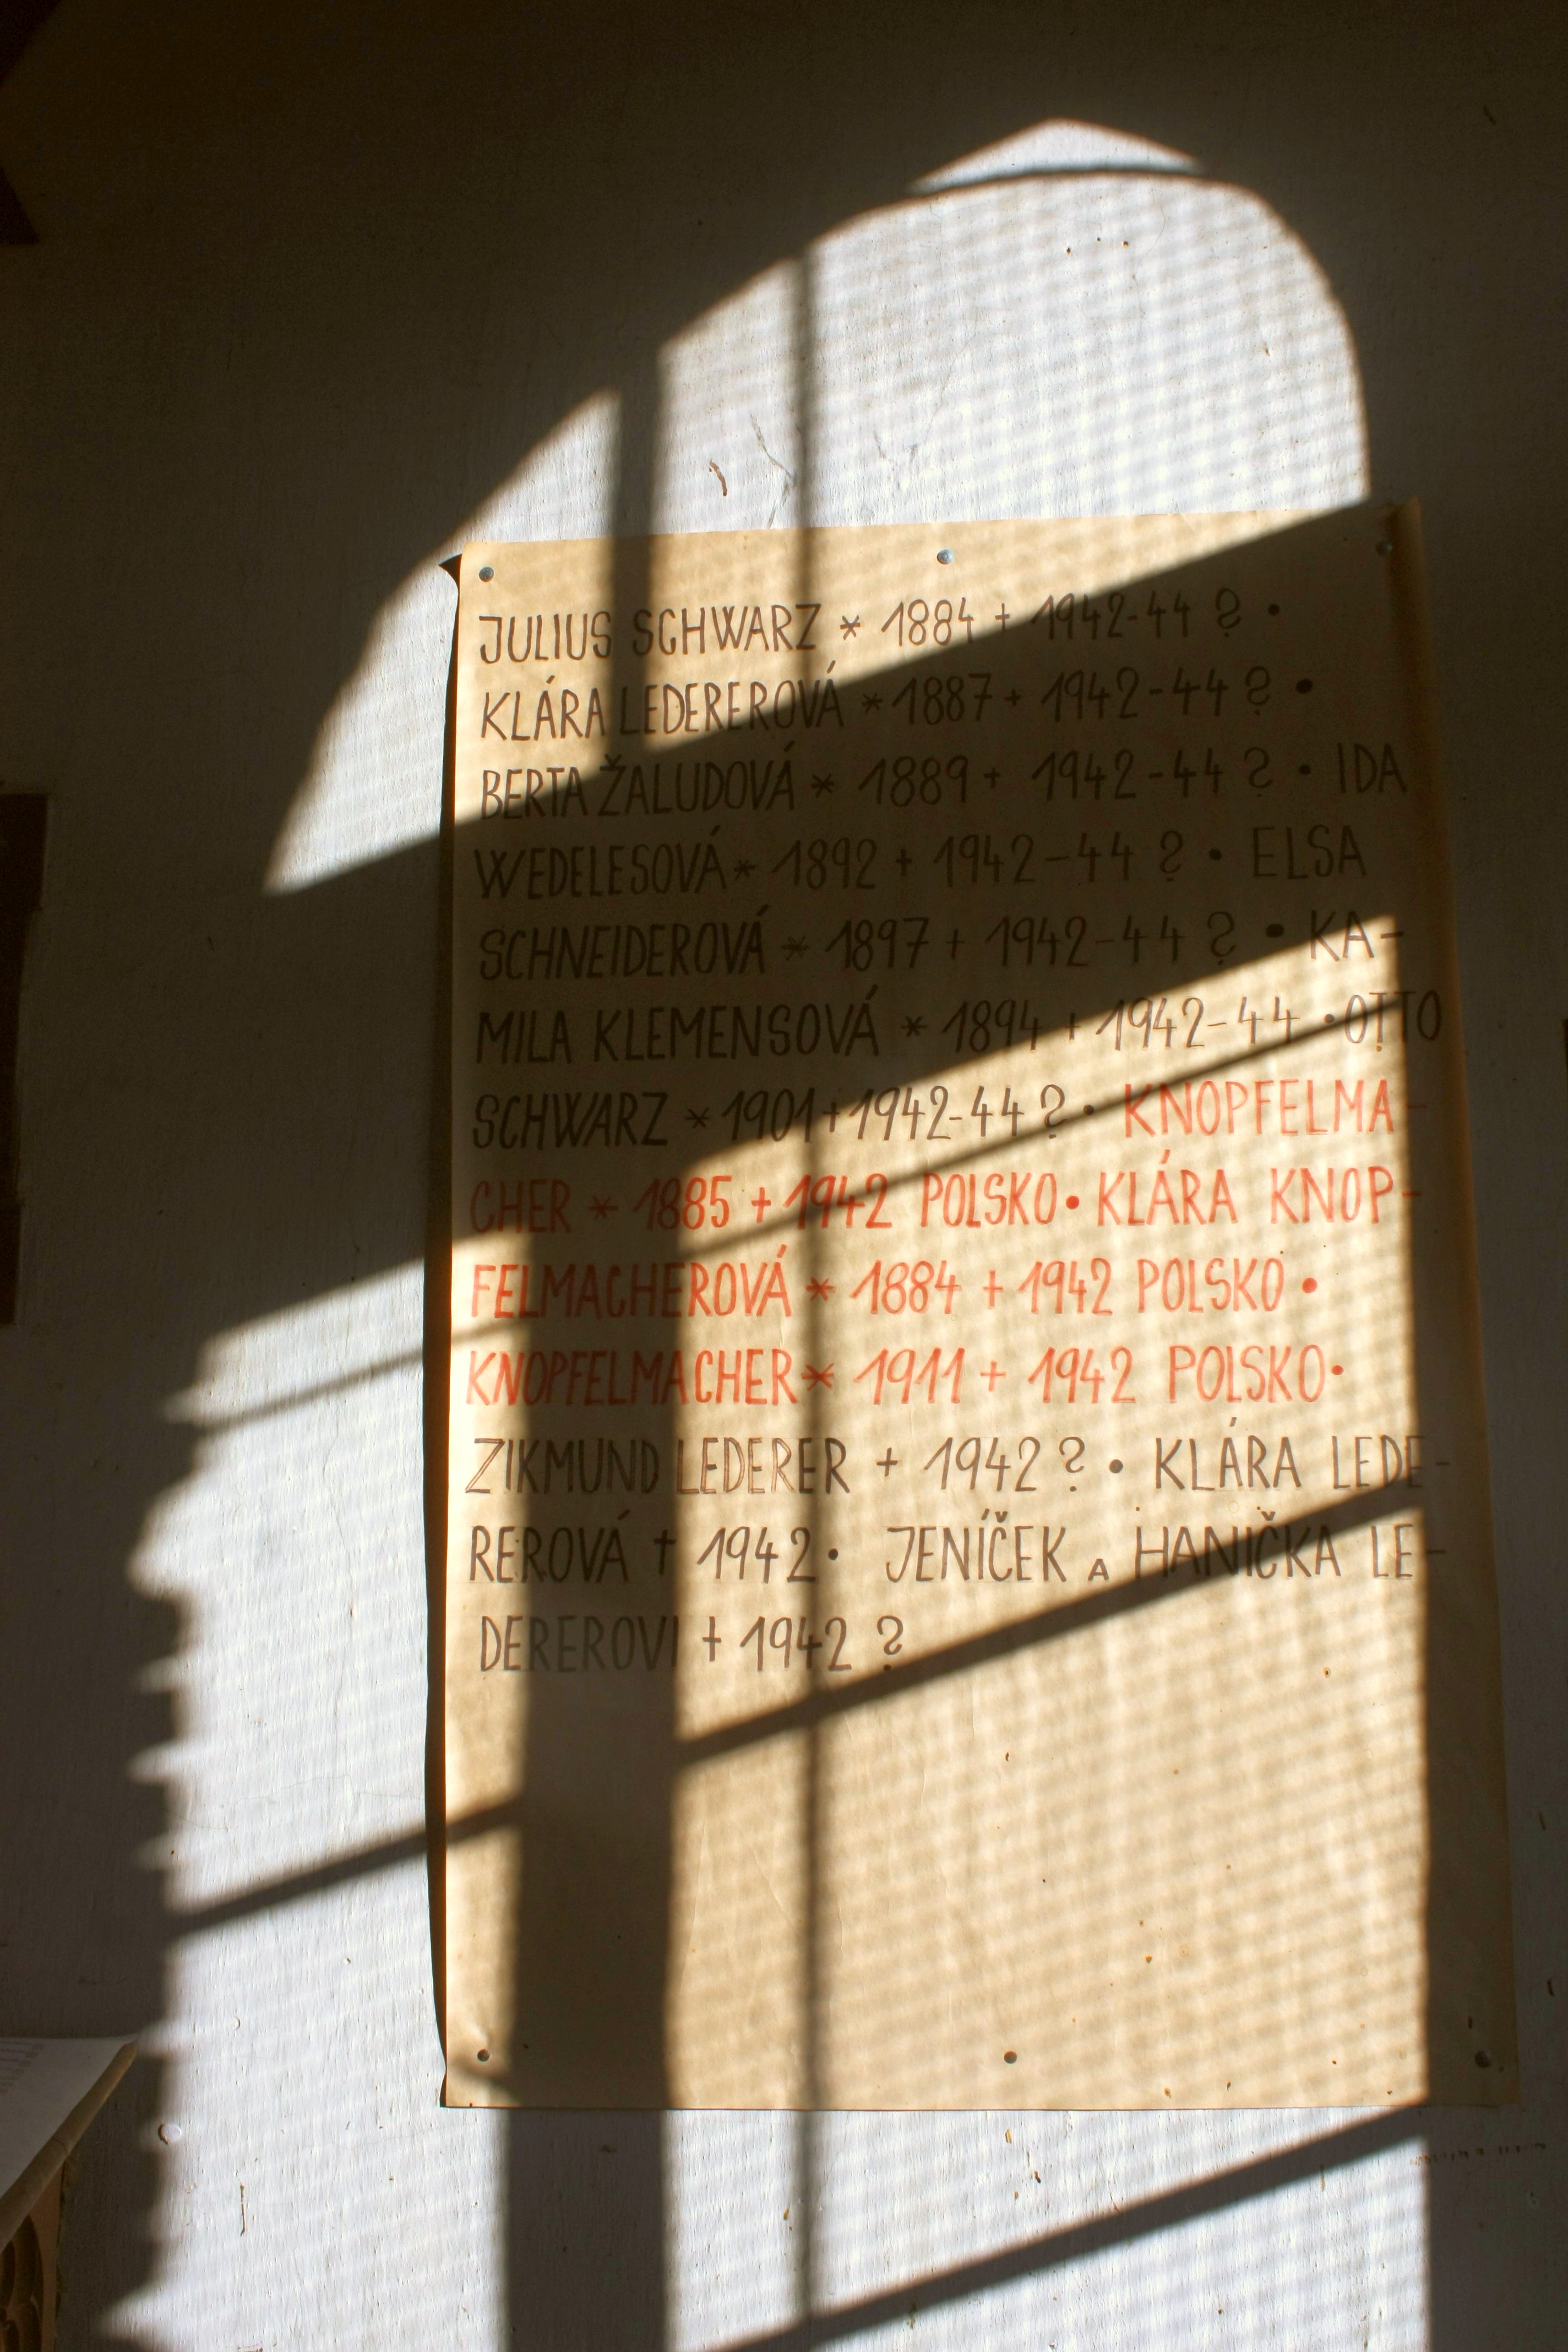 JULIUS SCHWARZ * 1884 + 1942-44 ? •
KLÁRA LEDEREROVÁ * 1887 + 1942-44 ? •
BERTA ŽALUDOVÁ * 1889 + 1942-44 ? • IDA
WEDELESOVÁ * 1892 + 1942-44 ? • ELSA
SCHNEIDEROVÁ * 1897 + 1942-44 ? • KA-
MILA KLEMENSOVÁ * 1894 + 1942-44 • OTTO
SCHWARZ * 1901 + 1942-44 ? • KNOPFELMA-
CHER * 1885 + 1942 POLSKO • KLÁRA KNOP-
FELMACHEROVÁ * 1884 + 1942 POLSKO •
KNOPFELMACHER * 1911 + 1942 POLSKO •
ZIKMUND LEDERER + 1942 ? • KLÁRA LEDE-
REROVÁ † 1942 • JENÍČEK A HANIČKA LE-
DEREROVI † 1942 ?